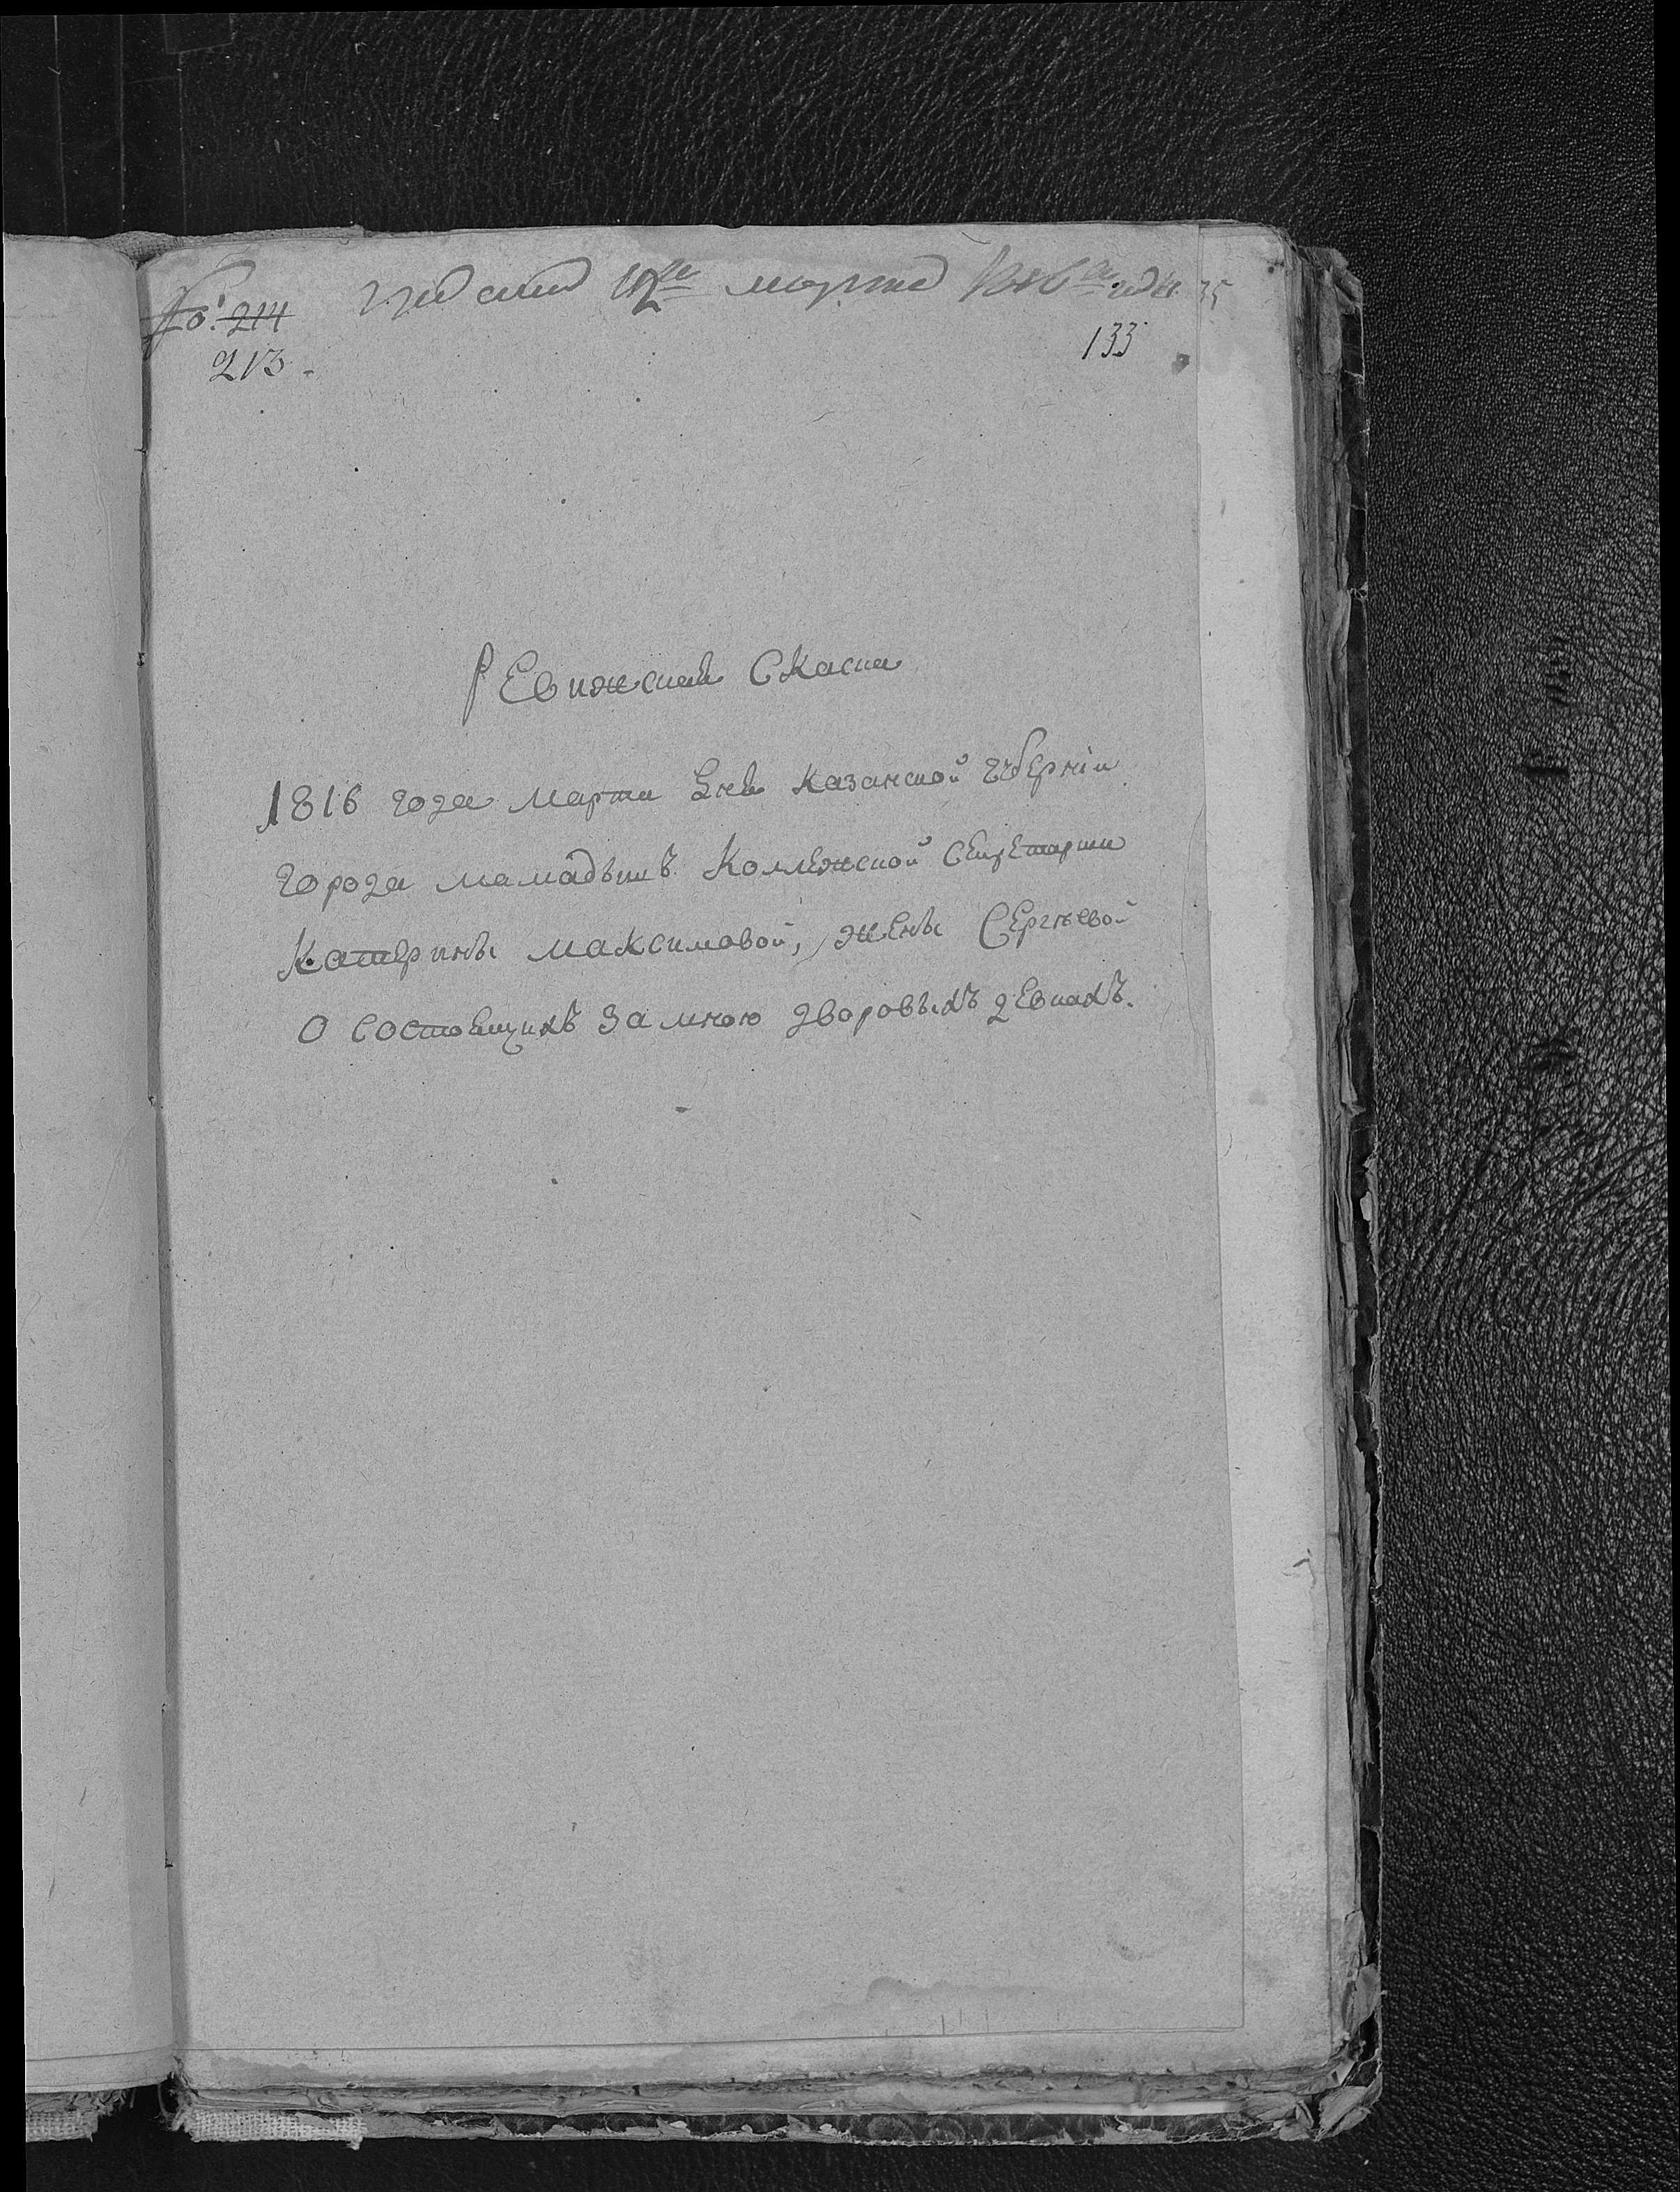 №: 214 подана 12го марта 1816го года 35
213. 133
Ревижская Скаска
1816 года марта дня казанской губернiи
города мамадышъ Коллежской Секретарши
Катерины максимовой, жены Сергѣевой
О состоящихъ за мною дворовыхъ девкахъ.